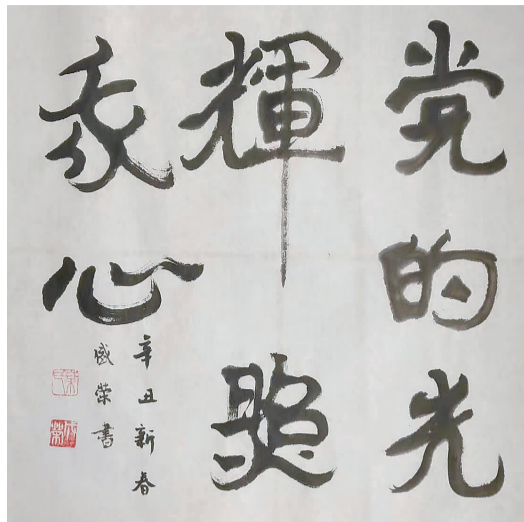 党的光
輝照
我心
辛丑新春
盛荣書